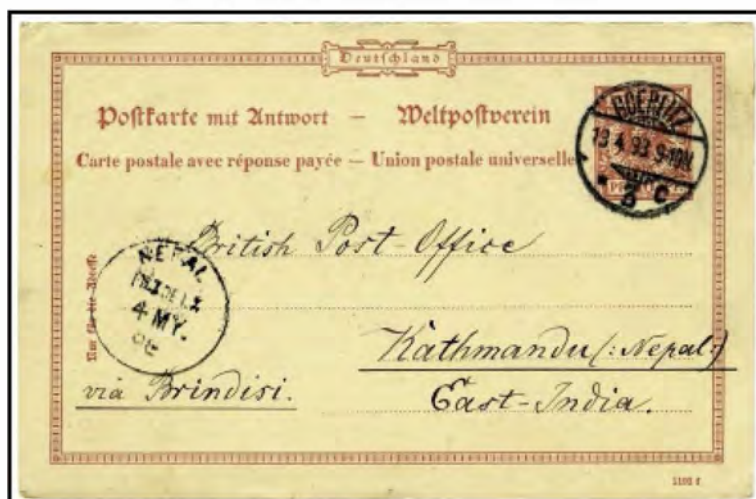 Deutschland
Postkarte mit Antwort — Weltpostverein
Carte postale avec réponse payée — Union postale universelle
GOERLITZ
13 4 93 9-10V.
3 c
British Post-Office
Nur für die Adresse
NEPAL
4 MY.
Kathmandu (:Nepal:)
via Brindisi.
East-India.